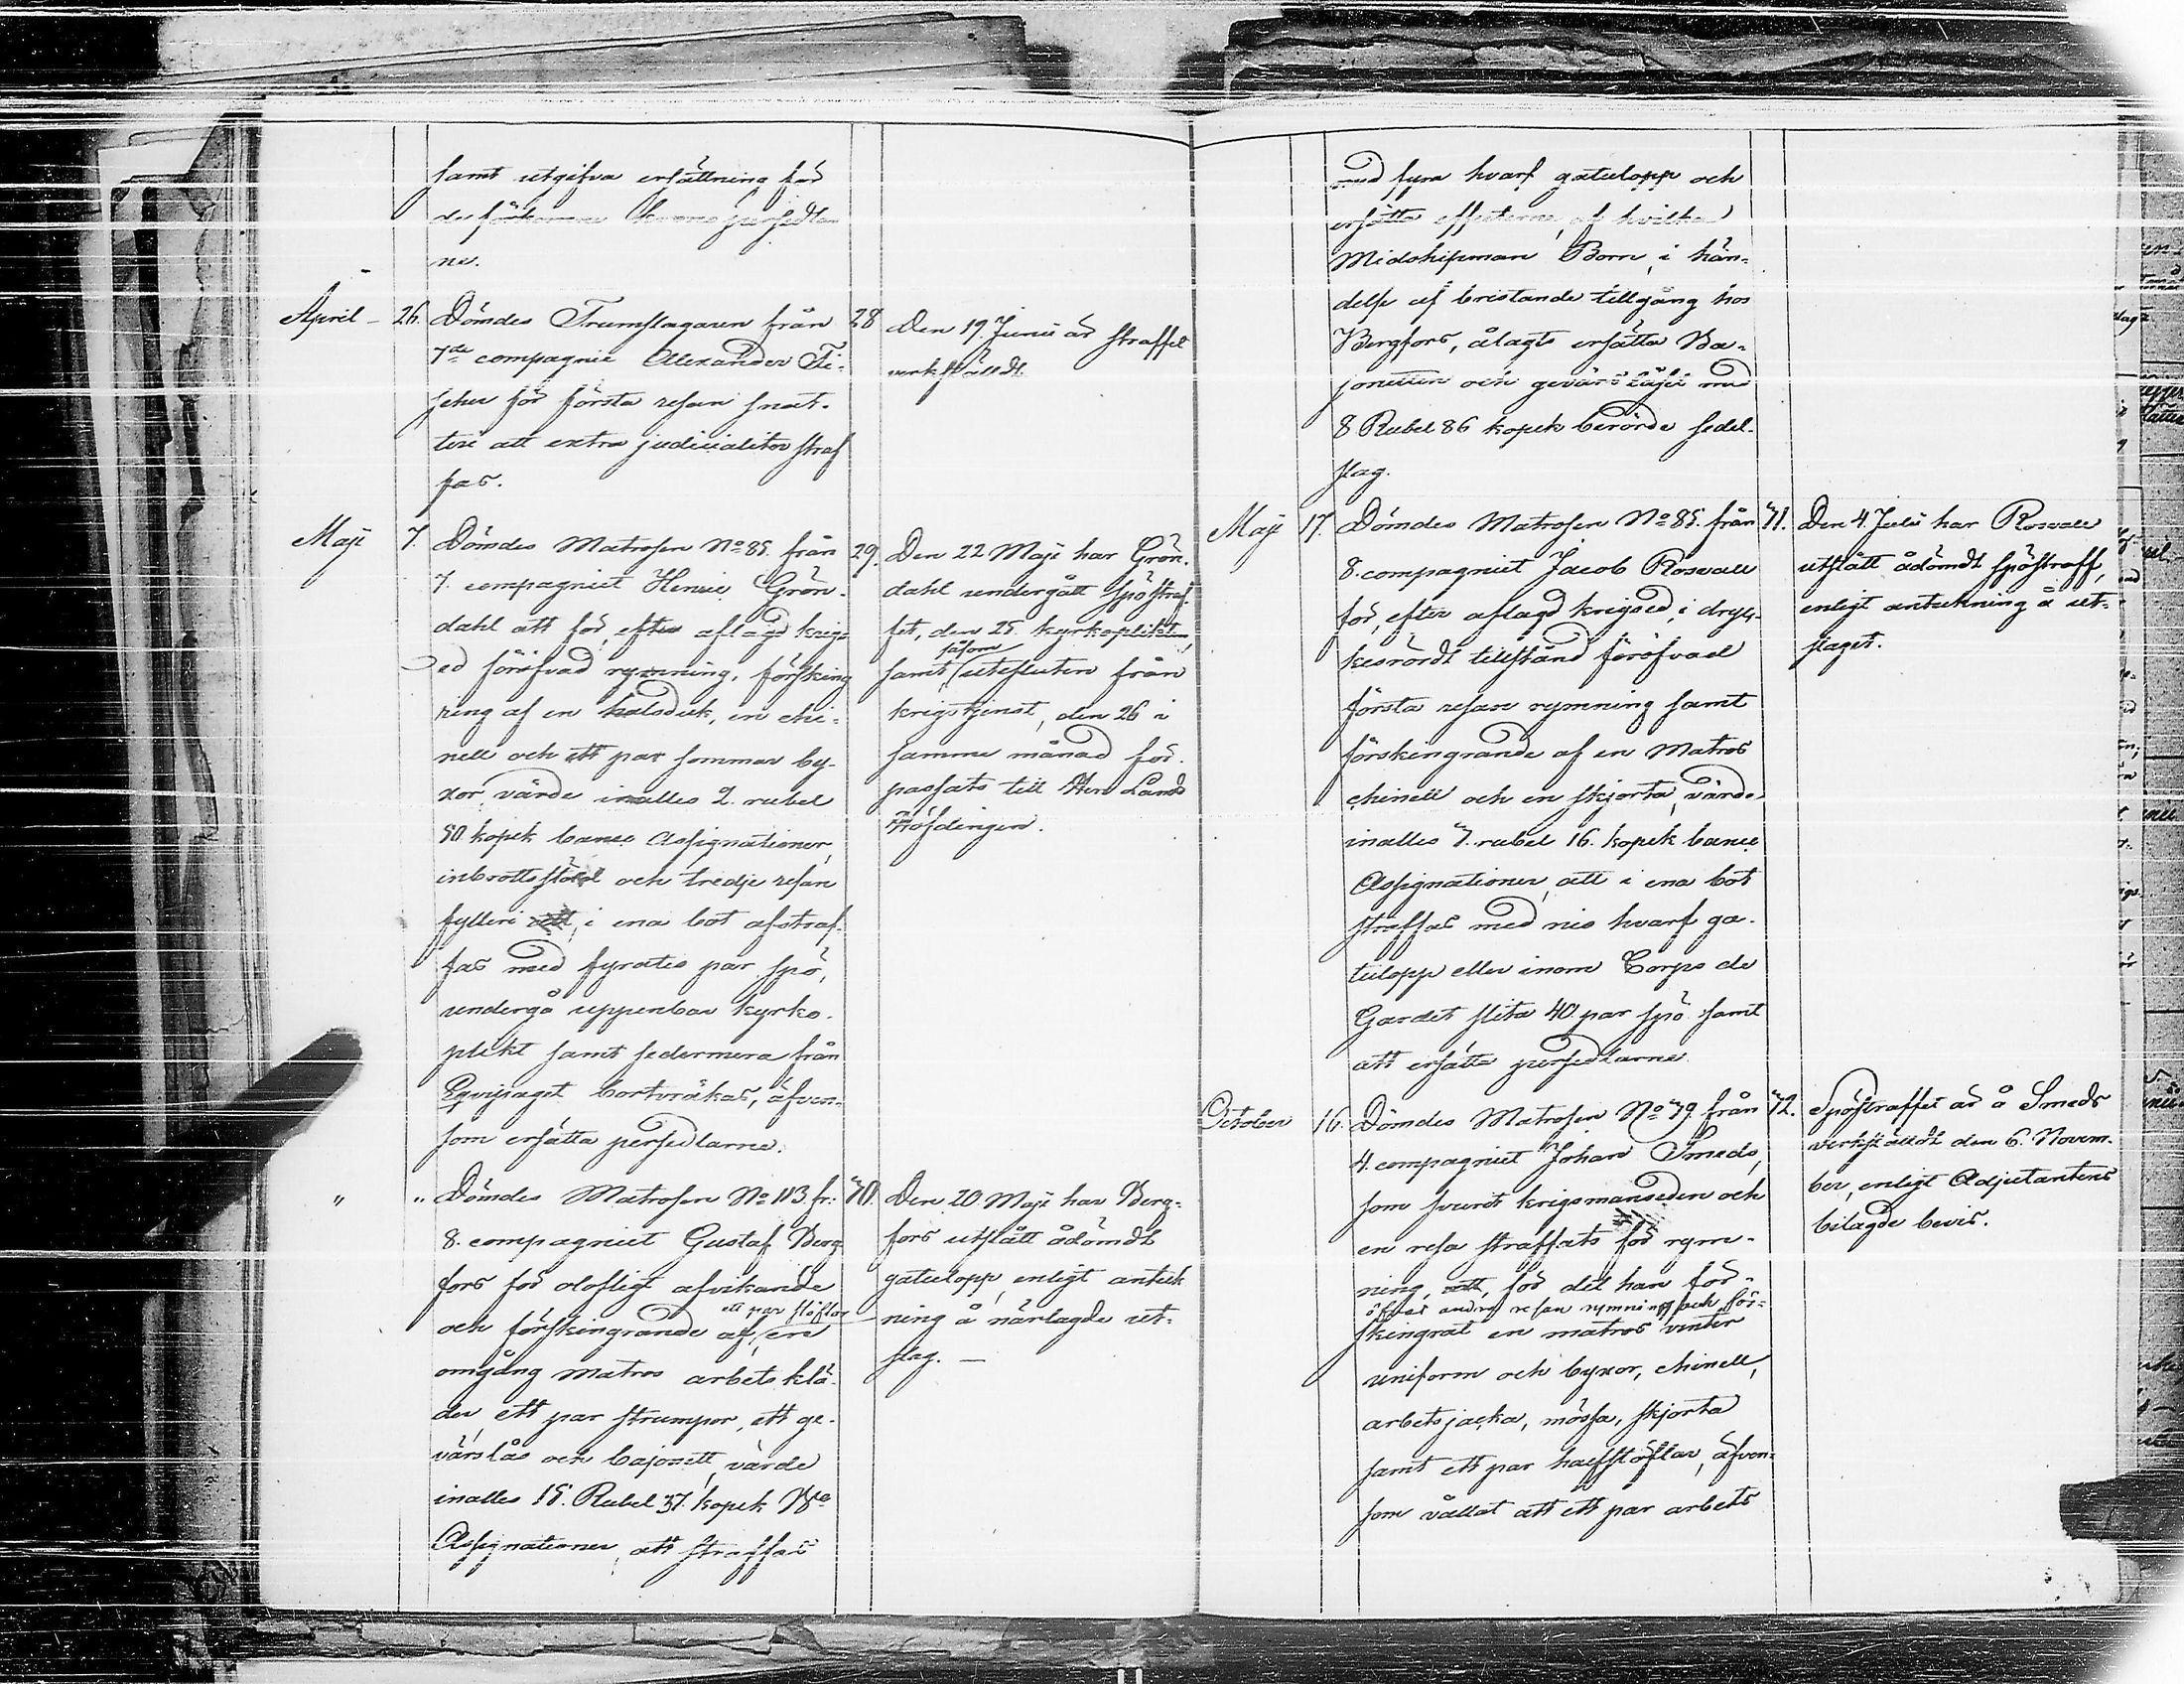 samt utgifva ersättning för
de förkomna Kronopersedlar
ne.
April – 26. Dömdes Trumslagaren från 28
7de compagnie Alexander Fi-
scher för första resan snat-
teri att extra judicialiter straf
fas.
Den 19 Junii är straffet
verkställdt.
Maji 7. Dömdes Matrosen No 85. från 29.
7. compagniet Henric Grön-
dahl att för, efter aflagd krigs
ed föröfvad rymning, försking
ring af en halsduk, en chi-
nell och ett par sommar by-
xor, värde inalles 2. rubel
80 kopek banco Assignationer,
inbrottsstöld och tredje resan
fylleri i ena bot afstraf-
fas med fyratio par spö,
undergå uppenbar kyrko-
plikt samt sedermera från
Eqvipaget bortvräkas, äfven-
som ersätta persedlarne.
Den 22 Maji har Grön-
dahl undergått spöstraf-
fet, den 25. kyrkoplikten,
såsom
samt utesluten från
krigstjenst, den 26 i
samma månad för-
passats till Herr Lands
höfdingen.
" " Dömdes Matrosen No 113 fr: 70.
8. compagniet Gustaf Berg
fors för olofligt afvikande
ett par stöflor
och förskingrande af en
omgång matros arbetsklä-
der, ett par strumpor, ett ge-
värslås och bajonett, värde
inalles 15. Rubel 37. kopek Bco
Assignationer, att straffas
Den 20 Maji har Berg-
fors utstått ådömdt
gatulopp, enligt anteck
ning å närlagde ut-
slag. —
med fyra hvarf gatulopp och
ersätta effecterne, af hvilka
Midshipman Born, i hän-
delse af bristande tillgång hos
Bergfors, ålagts ersätta Ba-
jonetten och gevärslåset med
8 Rubel 86 kopek berörde sedel-
slag.
Maji 17. Dömdes Matrosen No 85. från 71.
8. compagniet Jacob Rosvall
för, efter aflagd krigsed, i dryc-
kesrördt tillstånd föröfvad
första resan rymning samt
förskingrande af en Matros
chinell och en skjorta, värde
inalles 7. rubel 16. kopek banco
Assignationer, att i ena bot
straffas med nio hvarf ga-
tulopp eller inom Corps de
Gardet slita 40. par spö samt
att ersätta persedlarne.
Den 4. Julii har Rosvall
utstått ådömdt spöstraff,
enligt anteckning å ut-
slaget.
October 16. Dömdes Matrosen No 79. från 72.
4. compagniet Johan Smeds,
som svurit krigsmanseden och
en resa straffats för rym-
ning, för det han för-
öfvat andra resan rymning och för-
skingrat en matros vinter
uniform och byxor, chinell,
arbetsjacka, mössa, skjorta
samt ett par halfstöflar, äfven-
som vållat att ett par arbets
Spöstraffet är å Smeds
verkställdt den 6. Novem-
ber, enligt Adjutantens
bilagde bevis.